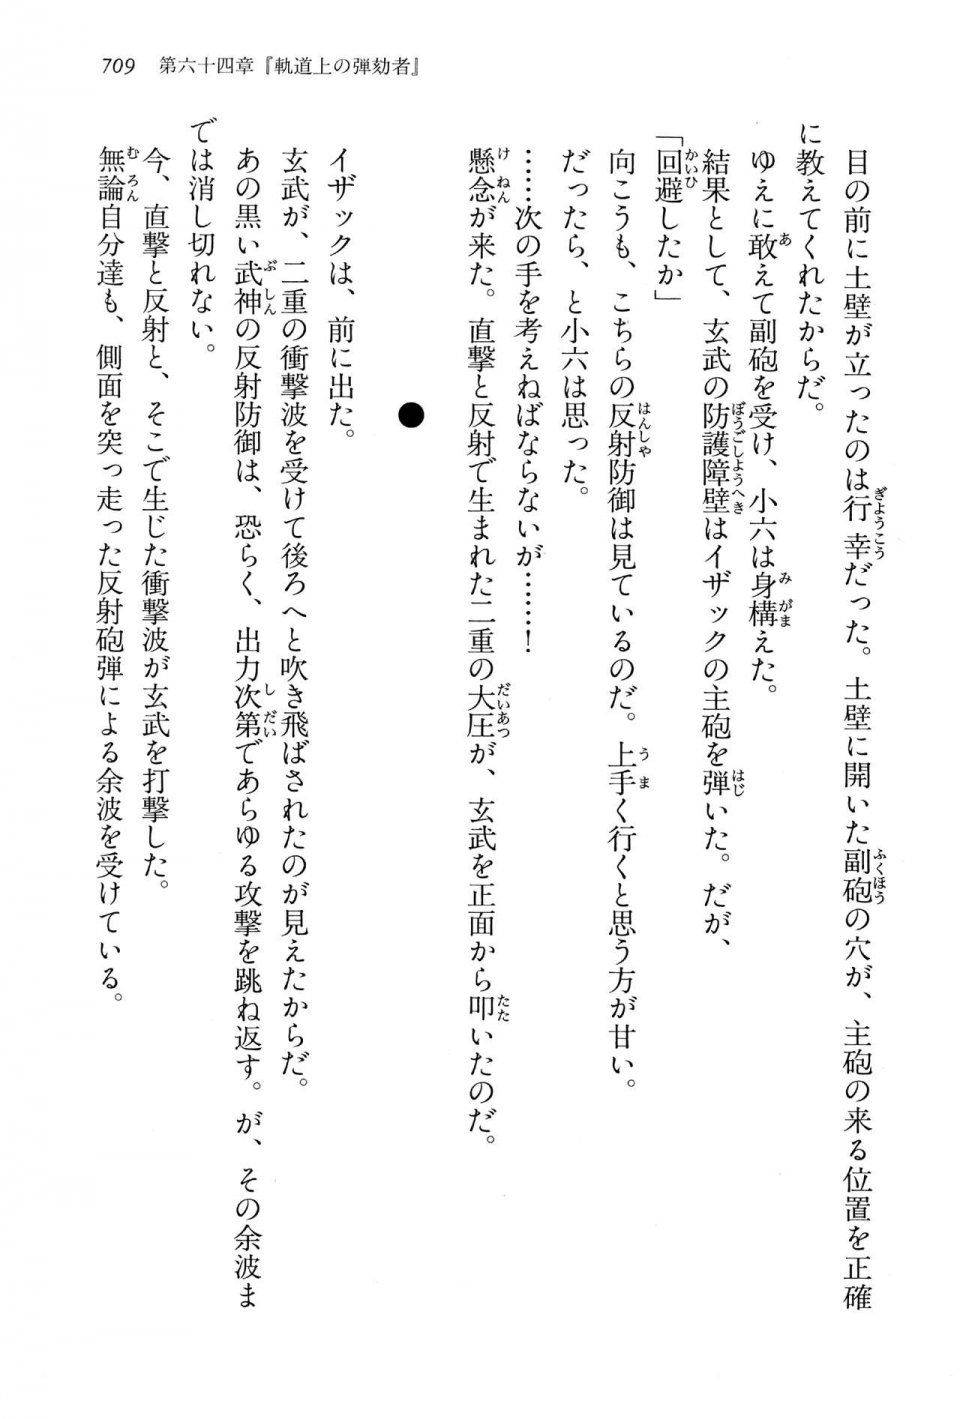 709　第六十四章『軌道上の弾劾者』
目の前に土壁が立ったのは行幸だった。土壁に開いた副砲の穴が、主砲の来る位置を正確
に教えてくれたからだ。
ゆえに敢えて副砲を受け、小六は身構えた。
結果として、玄武の防護障壁はイザックの主砲を弾いた。だが、
「回避したか」
向こうも、こちらの反射防御は見ているのだ。上手く行くと思う方が甘い。
だったら、と小六は思った。
……次の手を考えねばならないが……！
懸念が来た。直撃と反射で生まれた二重の大圧が、玄武を正面から叩いたのだ。
●
イザックは、前に出た。
玄武が、二重の衝撃波を受けて後ろへと吹き飛ばされたのが見えたからだ。
あの黒い武神の反射防御は、恐らく、出力次第であらゆる攻撃を跳ね返す。が、その余波ま
では消し切れない。
今、直撃と反射と、そこで生じた衝撃波が玄武を打撃した。
無論自分達も、側面を突っ走った反射砲弾による余波を受けている。